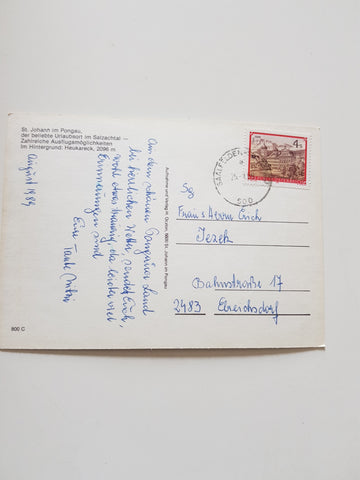 St. Johann im Pongau,
der beliebte Urlaubsort im Salzachtal —
Zahlreiche Ausflugsmöglichkeiten
Im Hintergrund: Heukareck, 2096 m
August 1984
Aus dem schönen Pongauer Land
bei herrlichem Wetter, sendet Euch,
wohl etwas traurig, da leider viel
Erinnerungen sind
Eure Tante
800 C
St. Johann im Pongau
4
SAALFELDEN
Frau & Herrn Erich
Jezek
Bahnstraße 17
2483 Ebreichsdorf